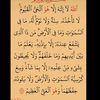 اللَّهُ لَا إِلَٰهَ إِلَّا هُوَ الْحَيُّ الْقَيُّومُ
لَا تَأْخُذُهُ سِنَةٌ وَلَا نَوْمٌ لَّهُ مَا فِي
السَّمَاوَاتِ وَمَا فِي الْأَرْضِ مَن ذَا الَّذِي
يَشْفَعُ عِندَهُ إِلَّا بِإِذْنِهِ يَعْلَمُ مَا
بَيْنَ أَيْدِيهِمْ وَمَا خَلْفَهُمْ وَلَا يُحِيطُونَ
بِشَيْءٍ مِّنْ عِلْمِهِ إِلَّا بِمَا شَاءَ وَسِعَ
كُرْسِيُّهُ السَّمَاوَاتِ وَالْأَرْضَ وَلَا يَئُودُهُ
حِفْظُهُمَا وَهُوَ الْعَلِيُّ الْعَظِيمُ